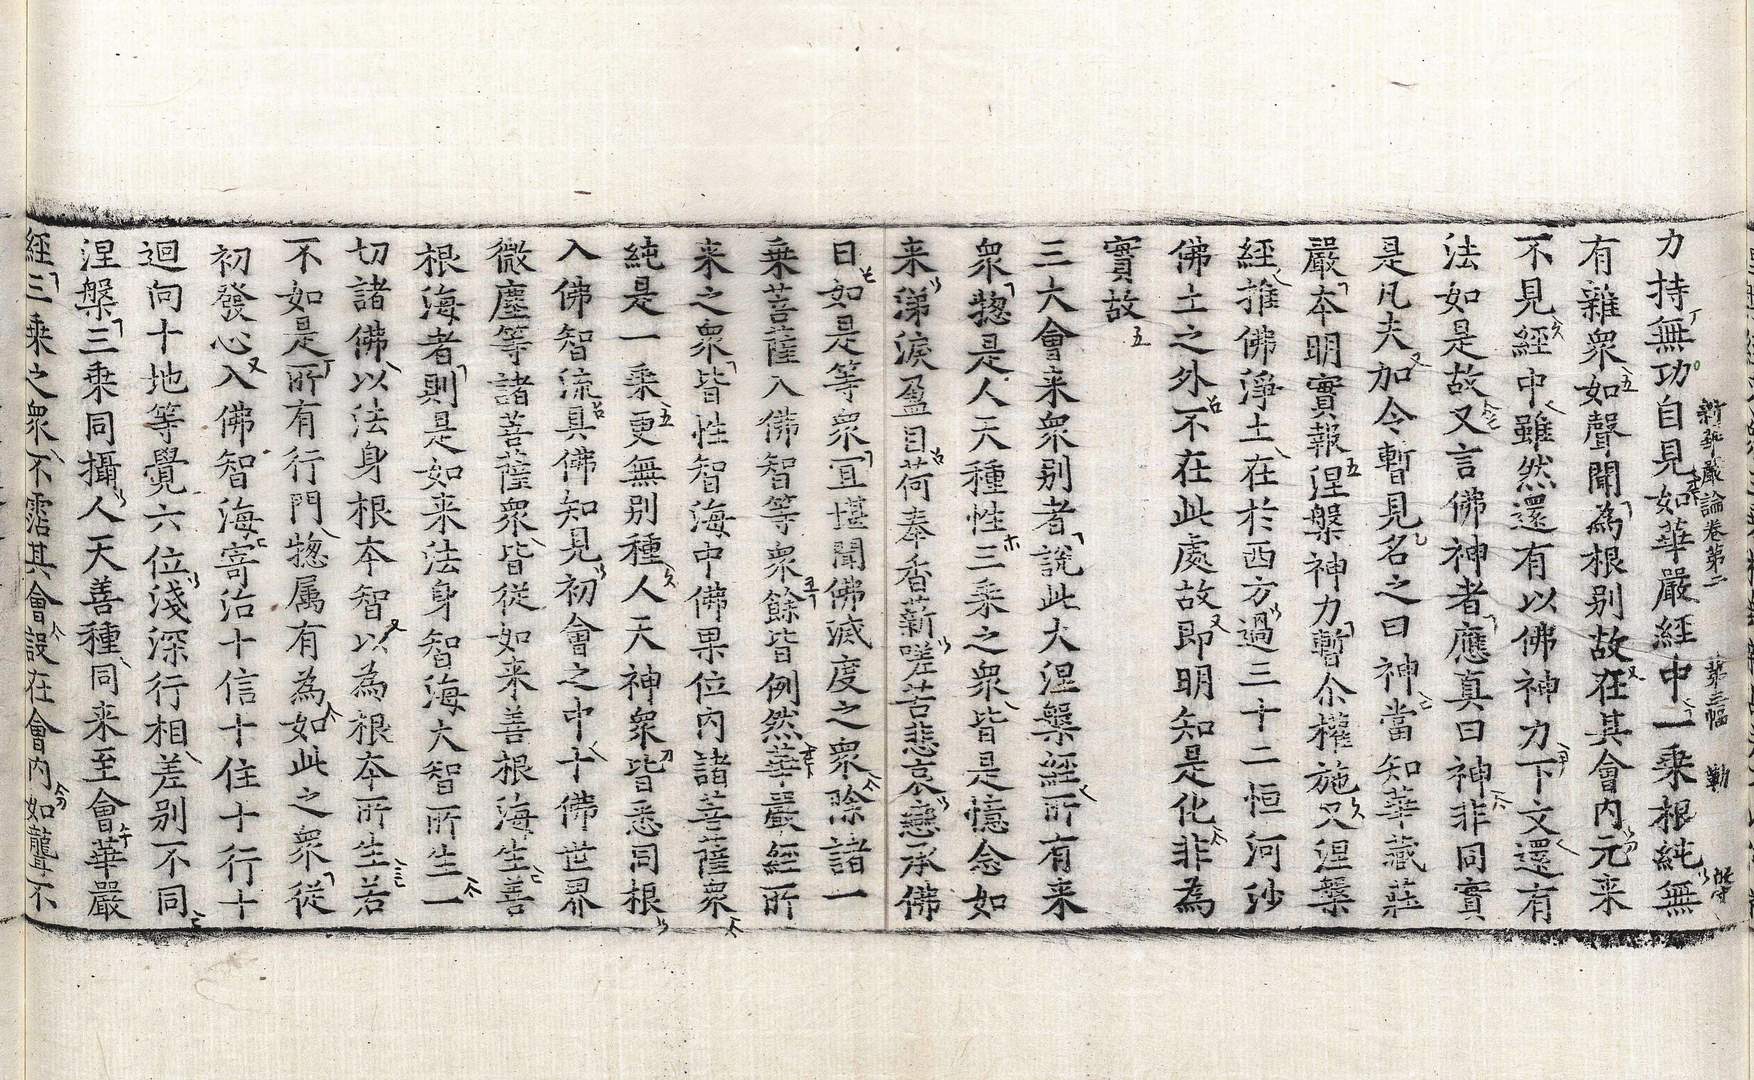 新華嚴論卷第二 第三幅 勒
力持無功自見如華嚴經中一乗根純無
有雜衆如聲聞為根别故在其會内元来
不見經中雖然還有以佛神力下文還有
法如是故又言佛神者應真曰神非同實
是凡夫加令暫見名之曰神當知華蔵莊
嚴本明實報涅槃神力暫尒權施又涅槃
經推佛淨土在於西方過三十二恒河沙
佛土之外不在此處故即明知是化非為
實故
三大會来衆别者說此大涅槃經所有来
衆惣是人天種性三乗之衆皆是憶念如
来涕淚盈目荷奉香薪嗟苦悲哀戀承佛
日如是等衆宜堪聞佛滅度之衆除諸一
乗菩薩入佛智等衆餘皆例然華嚴經所
来之衆皆性智海中佛果位内諸菩薩衆
純是一乗更無别種人天神衆皆悉同根
入佛智流具佛知見初會之中十佛世界
微塵等諸菩薩衆皆從如来善根海生善
根海者則是如来法身智海大智所生一
切諸佛以法身根本智以為根本所生若
不如是所有行門惣属有為如此之衆從
初發心入佛智海寄治十信十住十行十
迴向十地等覺六位淺深行相差别不同
涅槃三乗同攝人天善種同来至會華嚴
經三乗之衆不霑其會設在會内如聾不